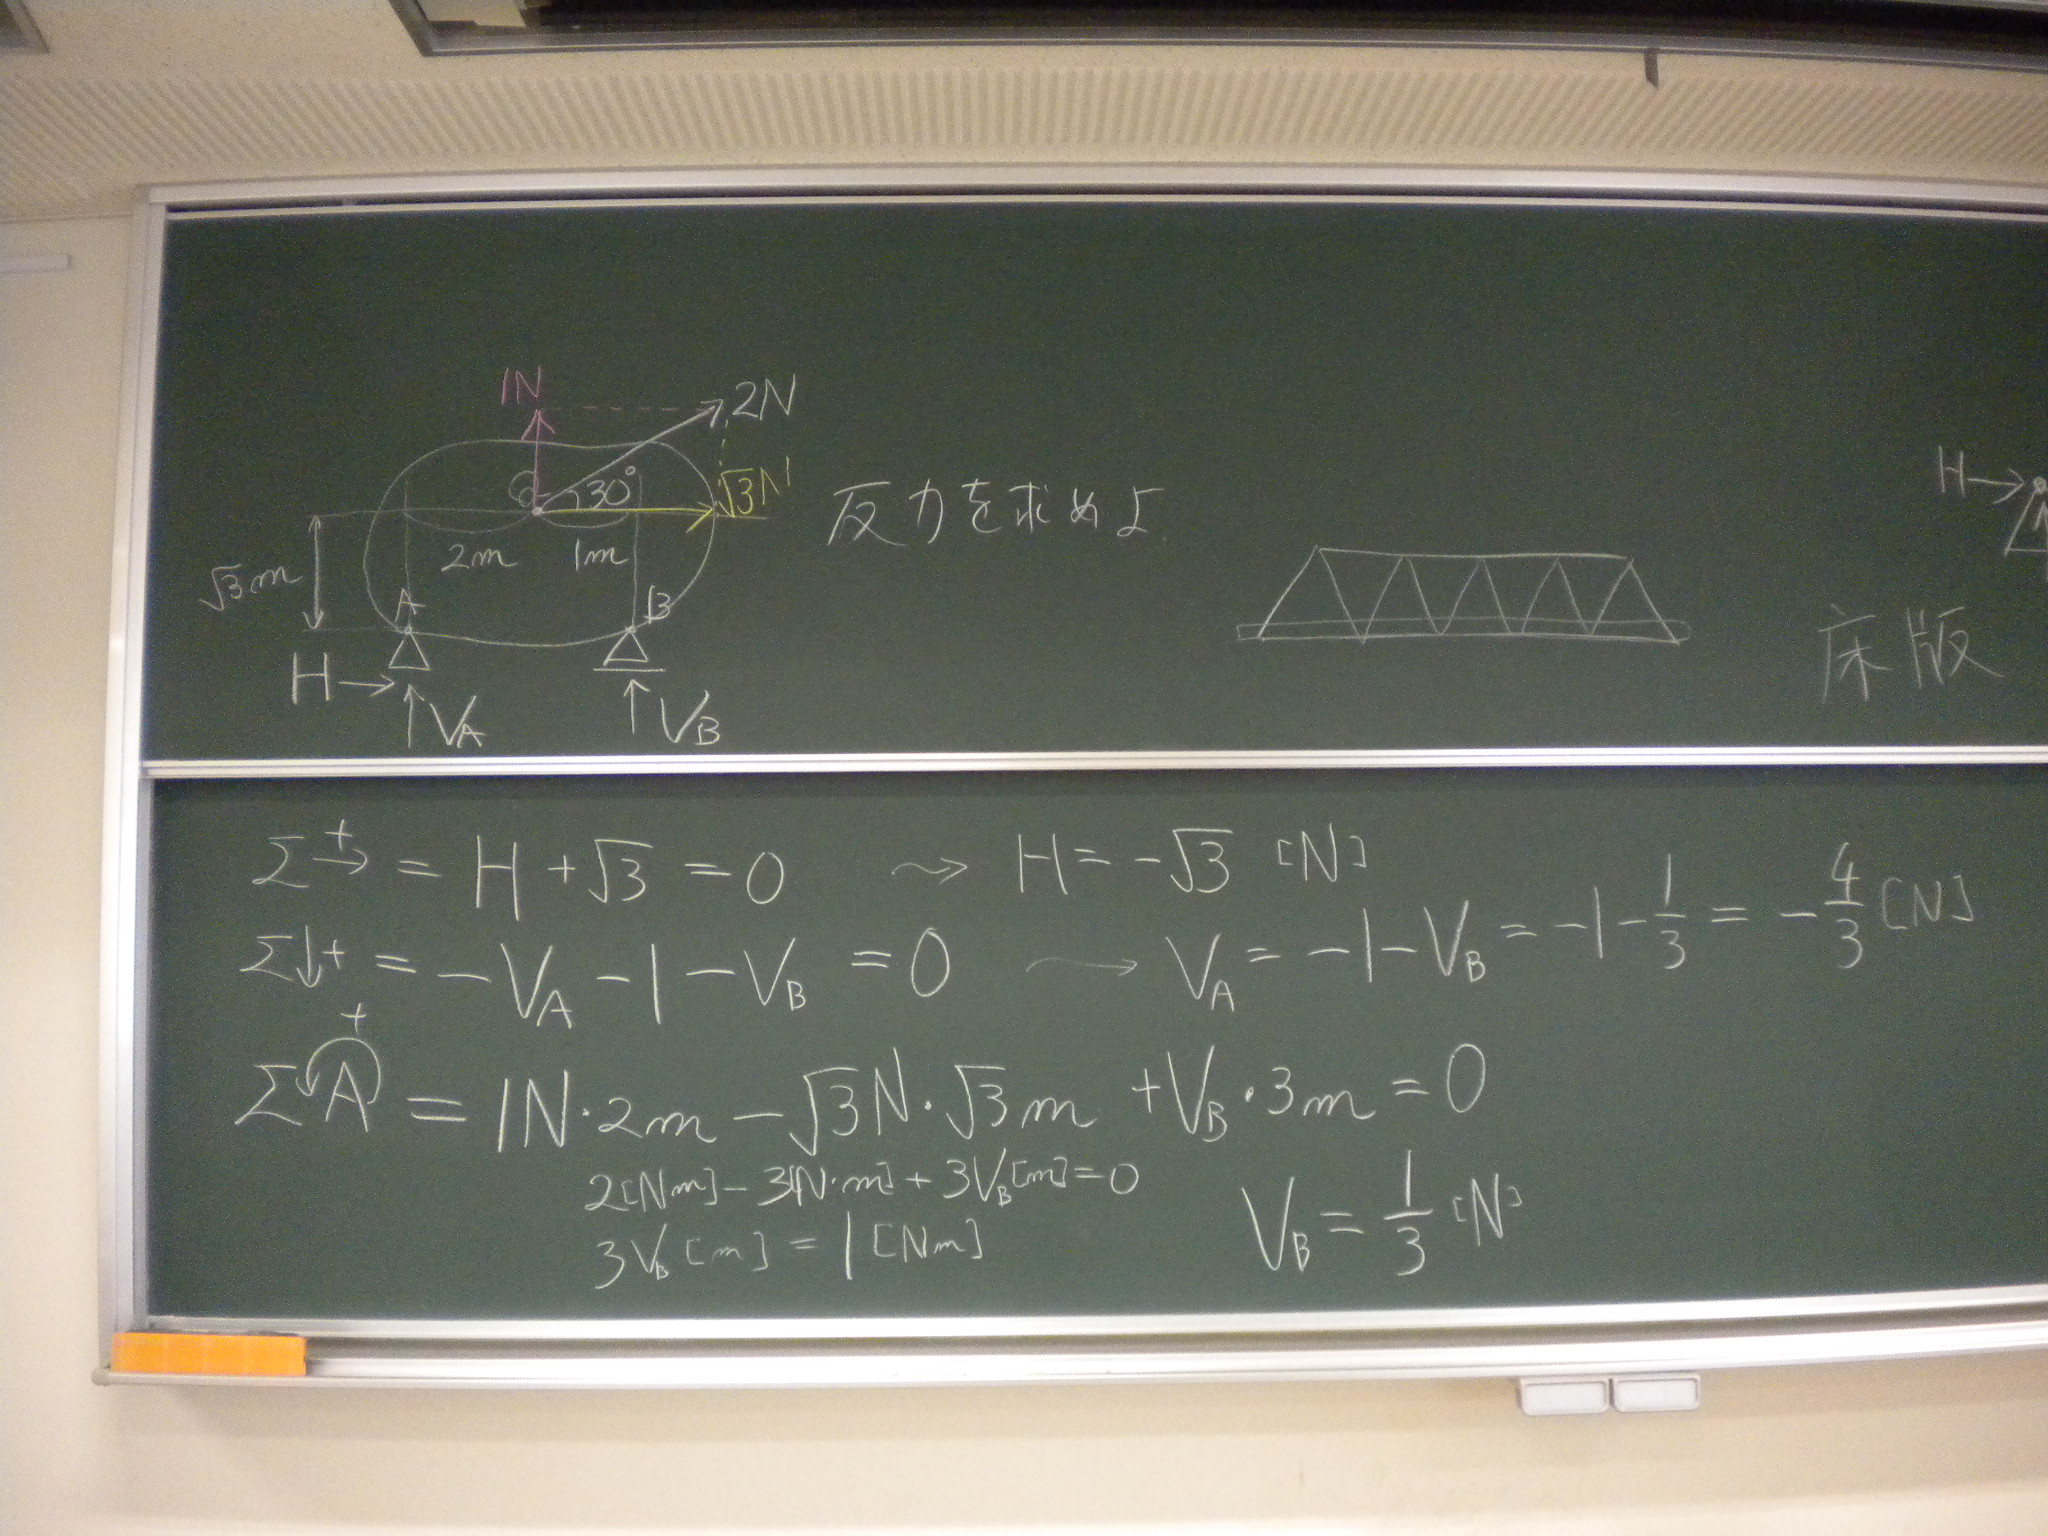 1N
2N
30°
√3N
反力を求めよ
2m 1m
√3m
A B
H
V_A V_B
H
床版
Σ→+ = H + √3 = 0 ⇝ H = -√3 [N]
Σ↓+ = -V_A - 1 - V_B = 0 → V_A = -1 - V_B = -1 - 1/3 = -4/3 [N]
+
Σ A = 1N·2m - √3N·√3m + V_B·3m = 0
2[Nm] - 3[N·m] + 3V_B[m] = 0
3V_B[m] = 1[Nm] V_B = 1/3 [N]